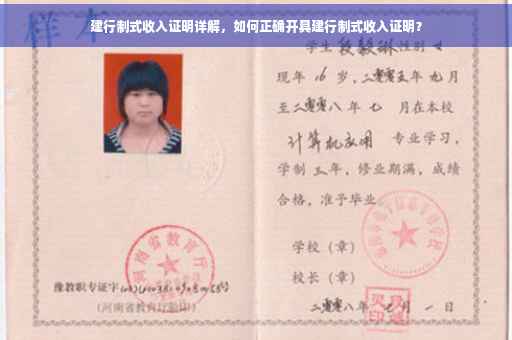 样本
建行制式收入证明详解，如何正确开具建行制式收入证明？
学生段毅琳性别女
现年16岁,二零零五年九月
至二零零八年七月在本校
计算机应用 专业学习,
学制三年，修业期满，成绩
合格，准予毕业
学校（章）
河南省教育厅
校长（章）
豫教职专证字
（河南省教育厅验印）
二零零八年七月一日